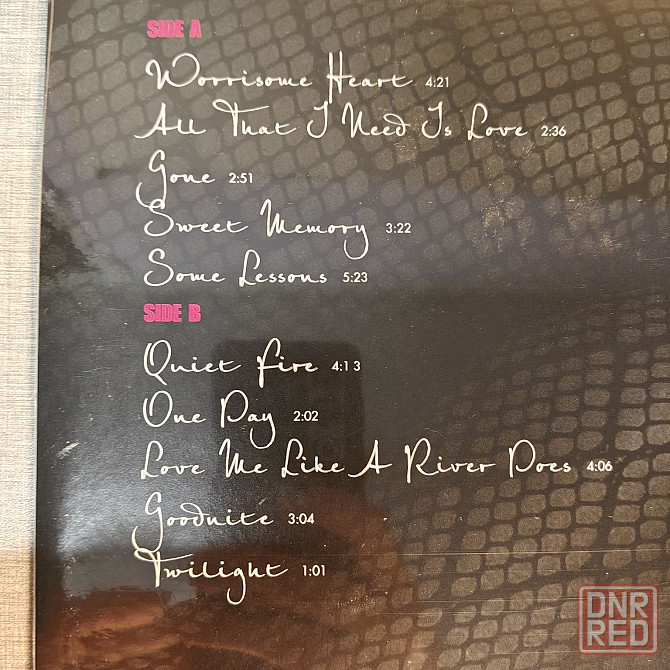 SIDE A
Worrisome Heart 4:21
All That I Need Is Love 2:36
Gone 2:51
Sweet Memory 3:22
Some Lessons 5:23
SIDE B
Quiet Fire 4:13
One Day 2:02
Love Me Like A River Does 4:06
Goodnite 3:04
Twilight 1:01
DNR
RED